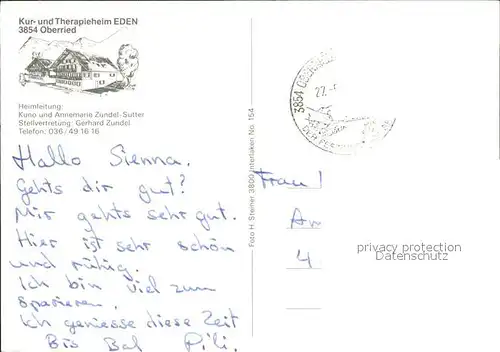 Kur- und Therapieheim EDEN
3854 Oberried
Heimleitung:
Kuno und Annemarie Zundel-Sutter
Stellvertretung: Gerhard Zundel
Telefon: 036/49 16 16
Hallo Sienna.
Gehts dir gut?
Mir gehts sehr gut.
Hier ist sehr schön
und ruhig.
Ich bin viel zum
spazieren.
Ich geniesse diese Zeit
Bis Bal Pili.
Foto H. Steiner 3800 Interlaken No. 154
3854
27.
Frau
An
4
privacy protection
Datenschutz